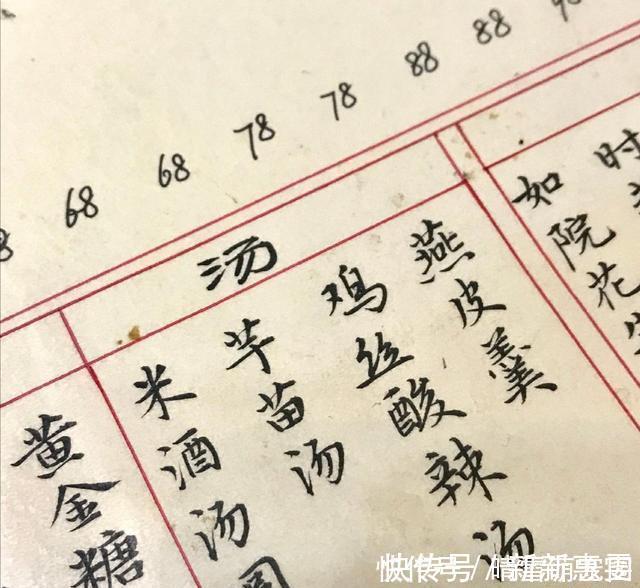 68 68 78 78 88 88
汤
时
如院花生
燕皮羹
鸡丝酸辣汤
芋苗汤
米酒汤圆
黄金糖
快传号